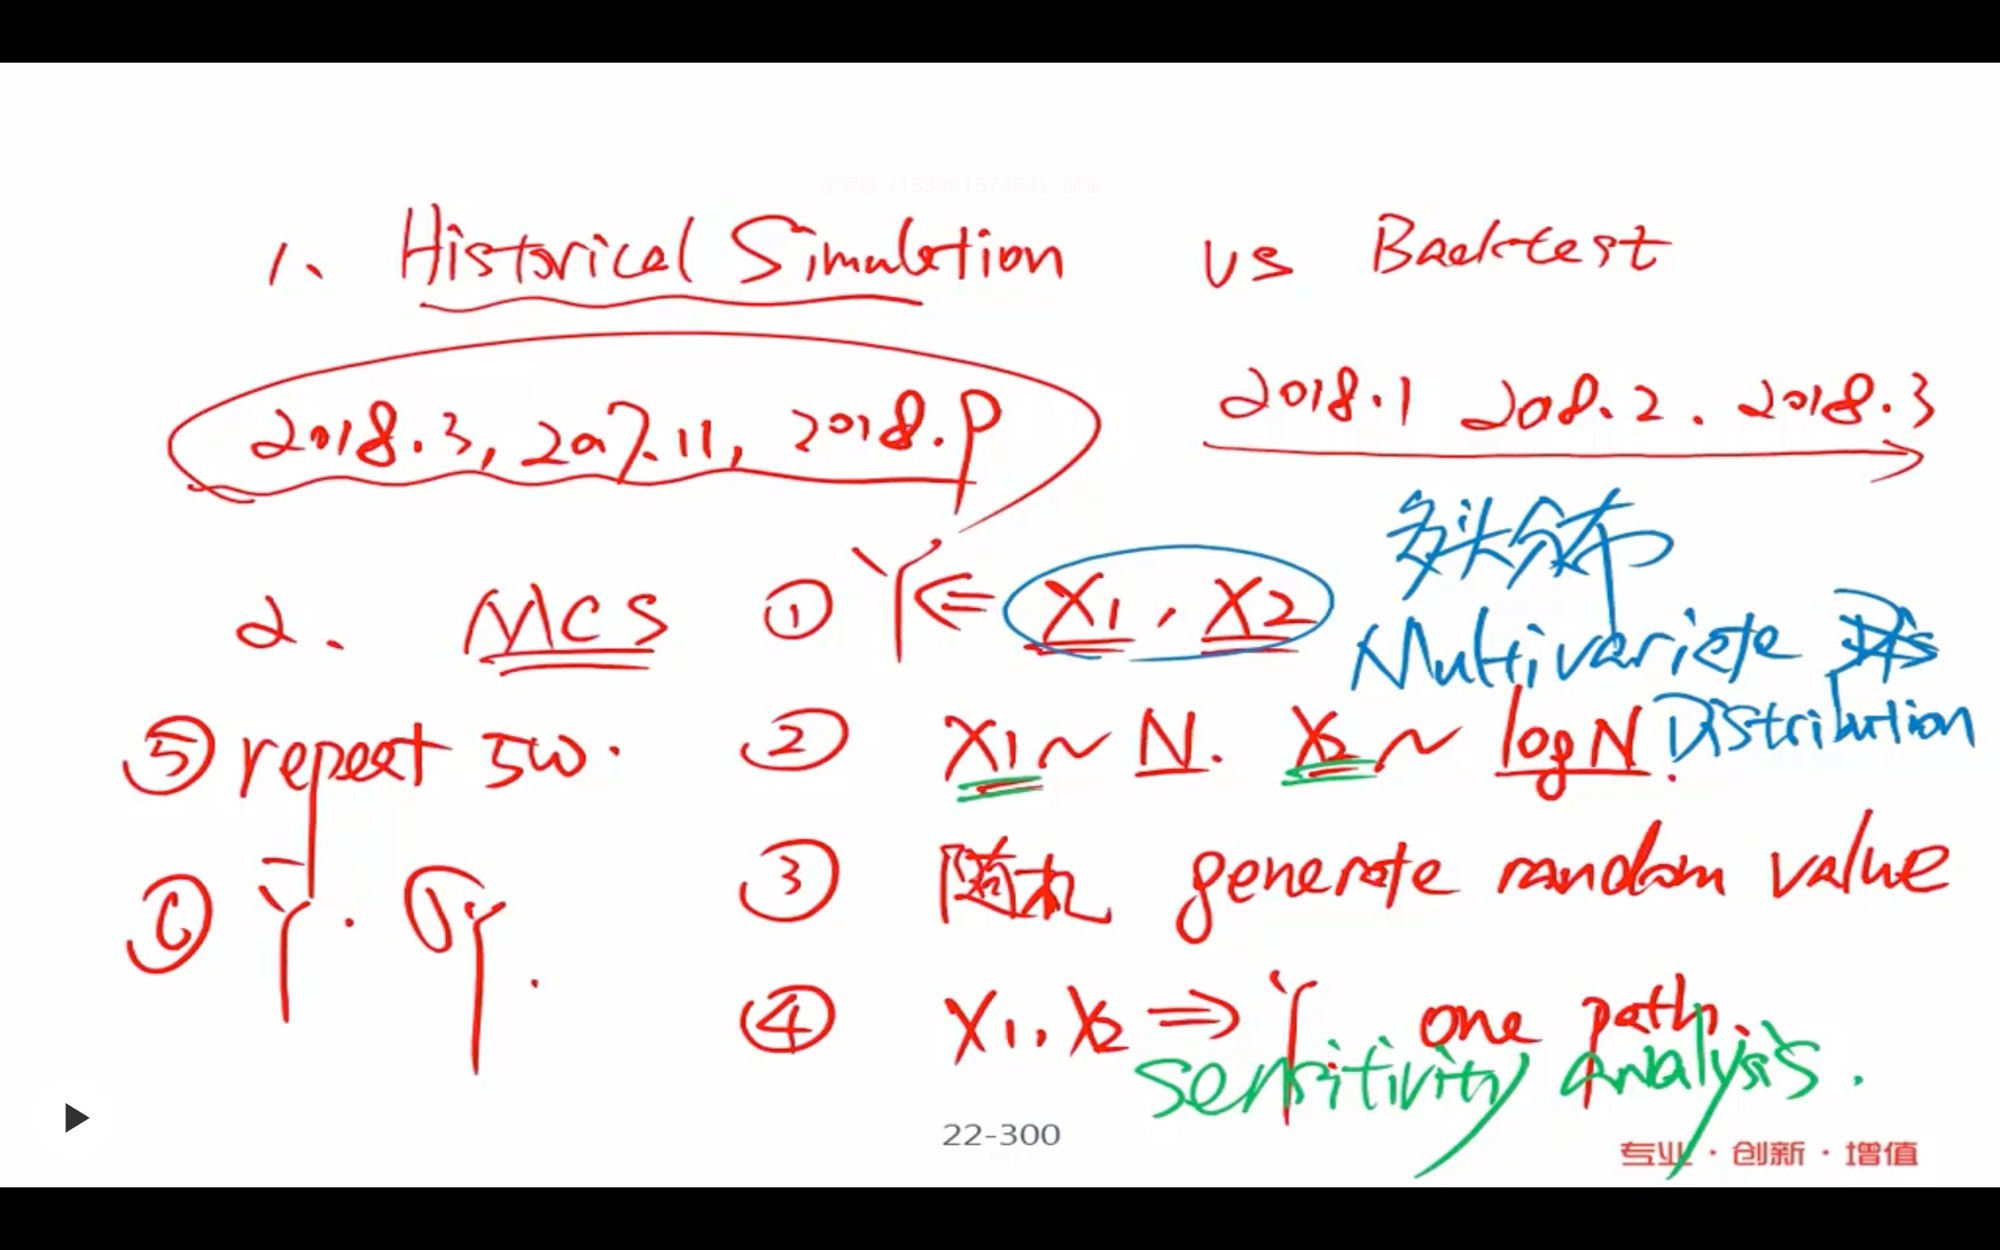 1、 Historical Simulation vs Backtest
2018.3, 2017.11, 2018.9
2018.1 2018.2. 2018.3
多头分布
2. MCS ① Y ⇐ X1, X2 Multivariate Dis
Distribution
⑤ repeat 500. ② X1 ~ N. X2 ~ logN.
③ 随机 generate random value
⑥ Ȳ. σY.
④ X1, X2 ⇒ Y one path.
sensitivity analysis.
22-300
专业·创新·增值